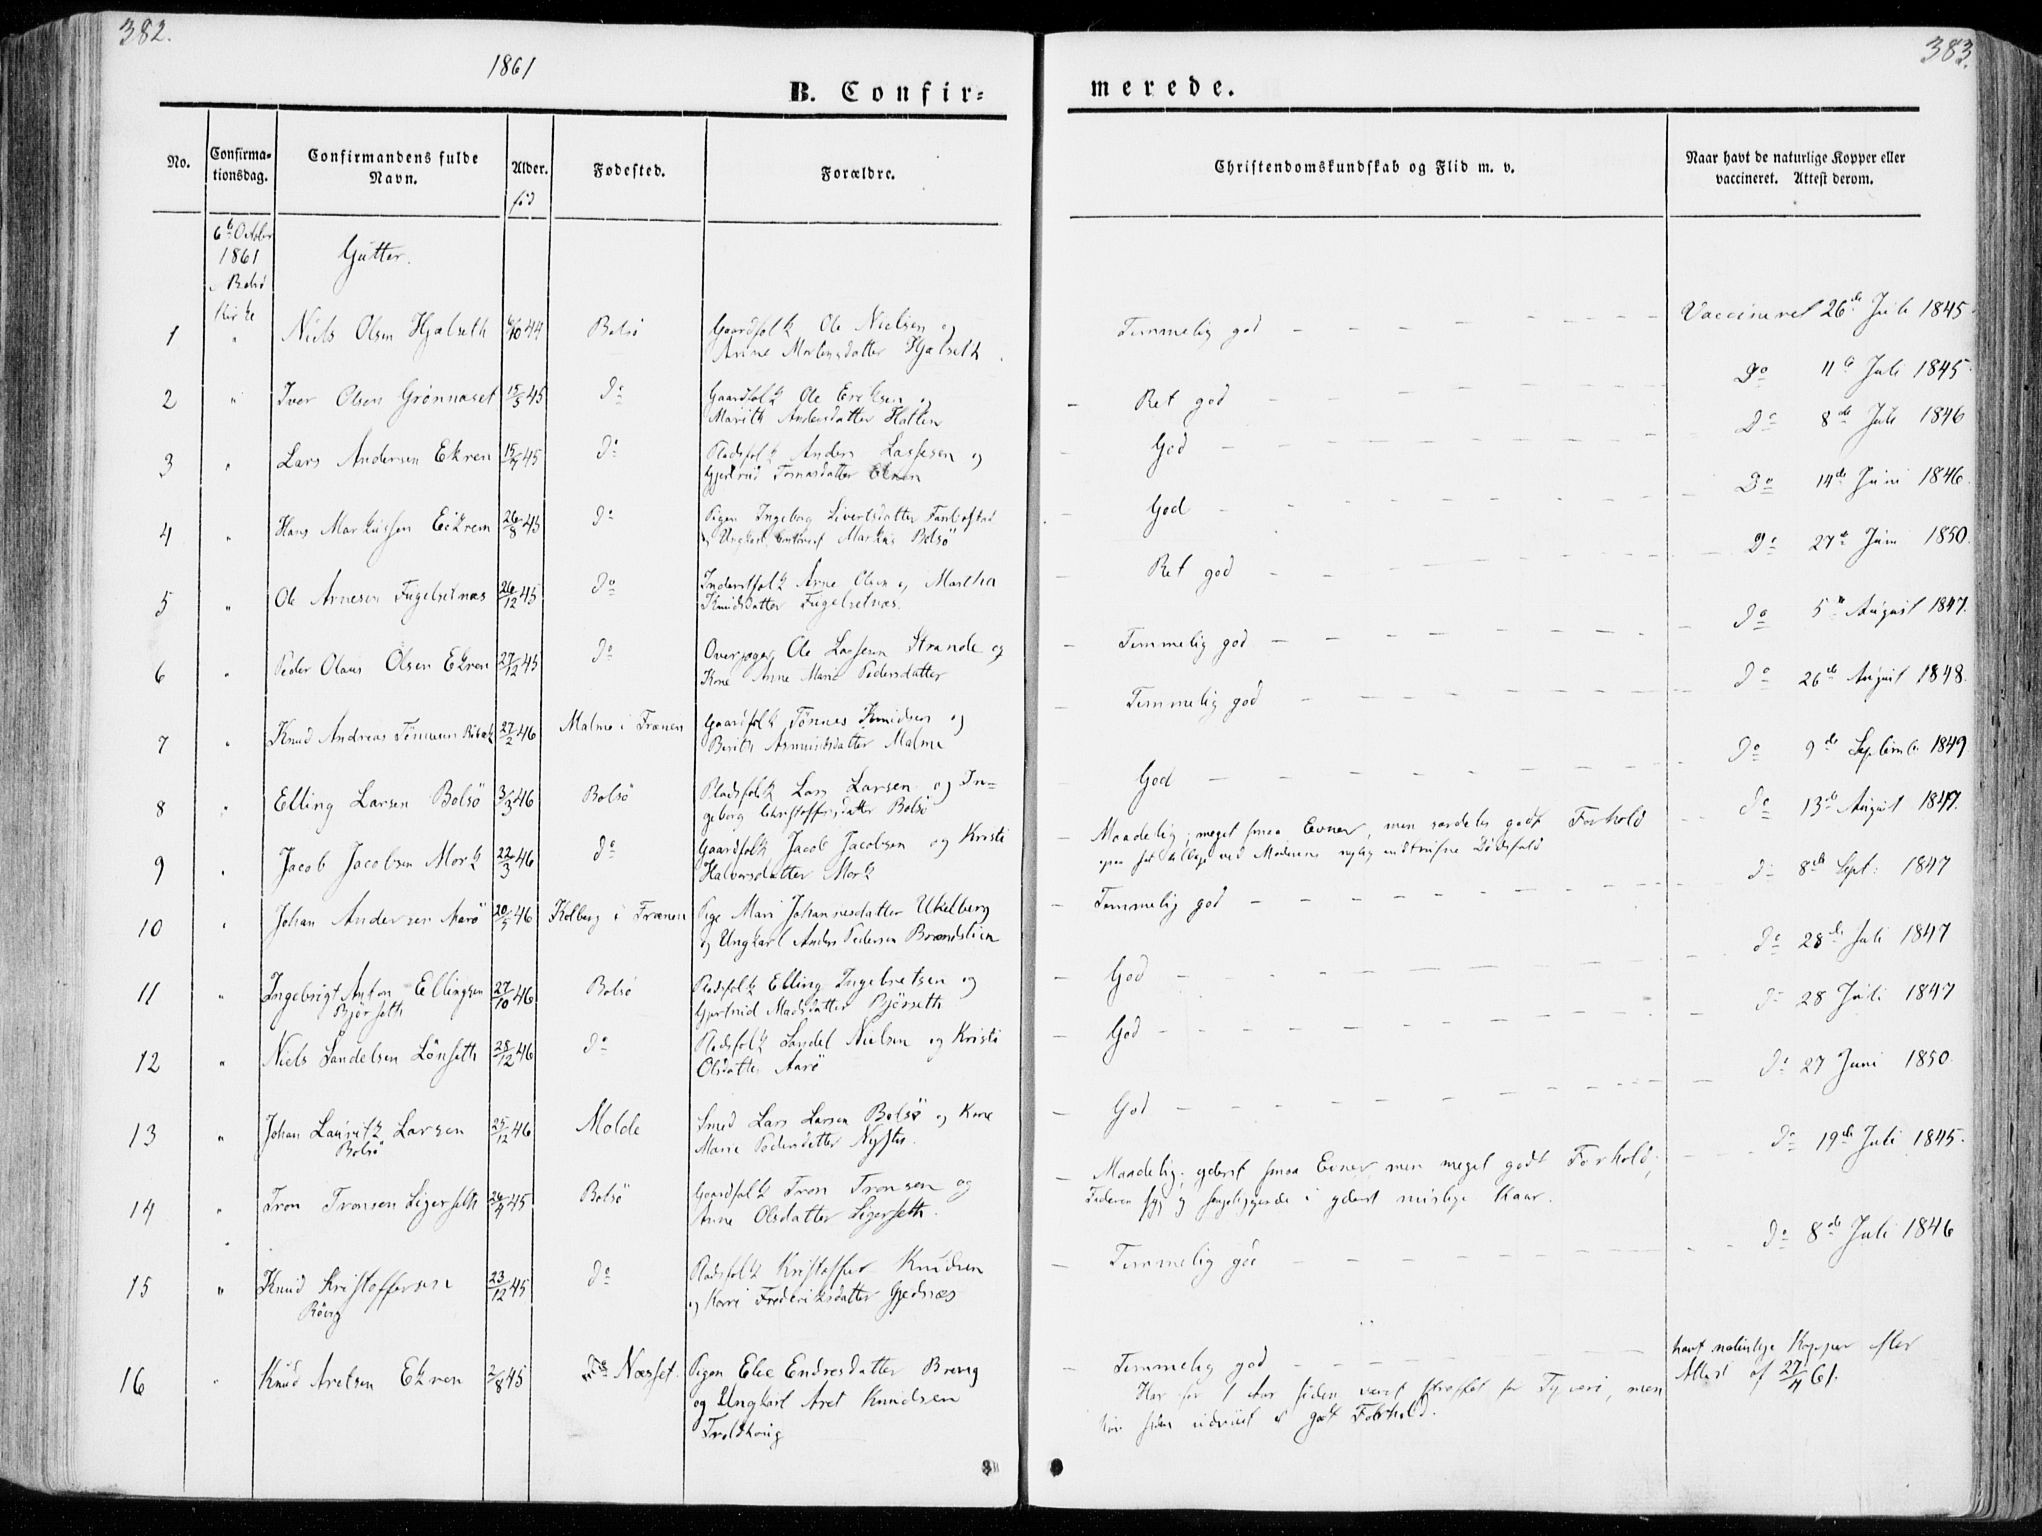 382.
383.
1861
B. Confir=
merede.
No.
Confirma-
tionsdag.
Confirmandens fulde
Navn.
Alder.
fød
Fødested.
Forældre.
Christendomskundskab og Flid m. v.
Naar havt de naturlige Kopper eller
vaccineret. Attest derom.
6te October
1861
i Bolsö
Kirke
Gutter.
1 " Niels Olsen Hjelseth 44 Bolsö Gaardfolk Ole Nielsen og
Anne Mortensdatter Hjelseth
Temmelig god
Vaccineret 26de Juli 1845
2 " Iver Olsen Grønnæset 15/5 45 Do Gaardfolk Ole Eriksen og
Marith Andersdatter Hatlen
Ret god
Do 11te Juli 1845
3 " Lars Andersen Ekren 45 Do Pladsfolk Anders Lassesen og
Gjertrud Tomasdatter Ekren
God
Do 8de Juli 1846
4 " Hans Markussen Eikrem 26/8 45 Do Pigen Ingeborg Sivertsdatter
og Ungkarl Markus Bolsö
God
Do 14de Juni 1846
5 " Ole Arnesen Fugelsetnæs 26/12 45 Do Inderstfolk Arne Olsen og Martha
Knudsdatter Fugelsetnæs.
Ret god
Do 27de Juni 1850.
6 " Peder Olaus Olsen Ekren 27/12 45 Do Overjæger Ole Lassesen Strande og
Kone Anne Marie Pedersdatter
Temmelig god
Do 5te August 1847.
7 " Knud Andreas Tönnesen 27/2 46 Malme i Frænen Gaardfolk Tönnes Knudsen og
Berith Asmundsdatter Malme
Temmelig god
Do 26de August 1848.
8 " Elling Larsen Bolsö 3/3 46 Bolsö Pladsfolk Lars Larsen og In=
geborg Christoffersdatter Bolsö
God
Do 9de Septemb. 1849
9 " Jacob Jacobsen Mork 22/3 46 Do Gaardfolk Jacob Jacobsen og Kristi
Halvorsdatter Mork
Maadelig; meget smaa Evner, men særdeles godt Forhold
ved Moderens nylig indtrufne Dödsfald
Do 13de August 1847.
10 " Johan Andersen Aarö 20/5 46 Kolberg i Frænen Pige Mari Johannesdatter Ukelberg
og Ungkarl Anders Pedersen Brændslien
Temmelig god
Do 8de Sept: 1847
11 " Ingebrigt Anton Ellingsen 27/10 46 Bolsö Pladsfolk Elling Ingebretsen og
Björseth Gjertrud Madsdatter Björseth
God
Do 28de Juli 1847
12 " Niels Sandelsen Lönseth 25/12 46 Do Pladsfolk Sandel Nielsen og Kristi
Olsdatter Aarö
God
Do 28 Juli 1847
13 " Johan Lauritz Larsen 25/12 46 Molde Smed Lars Larsen Bolsö og Kone
Bolsö Marie Pedersdatter
God
Do 27 Juni 1850.
14 " Tron Tronsen Ligerseth 26/4 45 Bolsö Gaardfolk Tron Tronsen og
Anne Olsdatter Ligerseth.
Maadelig; yderst smaa Evner men meget godt Forhold;
Faderen syg og sengeliggende i yderst mislige Kaar.
Do 19de Juli 1845.
15 " Knud Kristoffersen 23/12 45 Do Pladsfolk Kristoffer Knudsen
Rövig og Karri Frederiksdatter Gjednæs
Temmelig god
Do 8de Juli 1846
16 " Knud Aretsen Ekren 2/8 45 Næsset. Pigen Elie Endresdatter Brevig
og Ungkarl Aret Knudsen
Troldhoug
Temmelig god
Har for 1 Aar siden været straffet for Tyveri, men
har siden udviist et godt Forhold.
havt naturlige Kopper efter
Attest af 27/4 61.